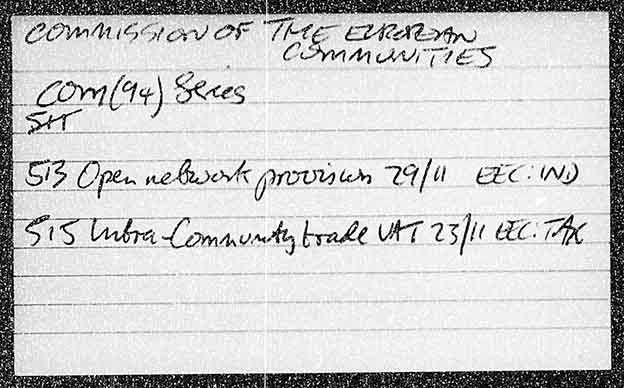 COMMISSION OF THE EUROPEAN
COMMUNITIES
COM(94) Series
513 Open network provision 29/11 EEC: IND
515 Intra-Community trade VAT 23/11 EEC: TAX